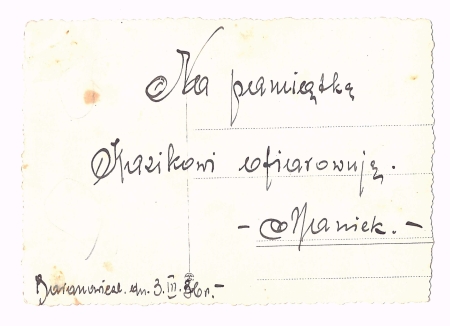 Na pamiątkę
Kazikowi ofiarowuję.
- Maniek. -
Baranowicze. dn. 3. III. 36 r. -